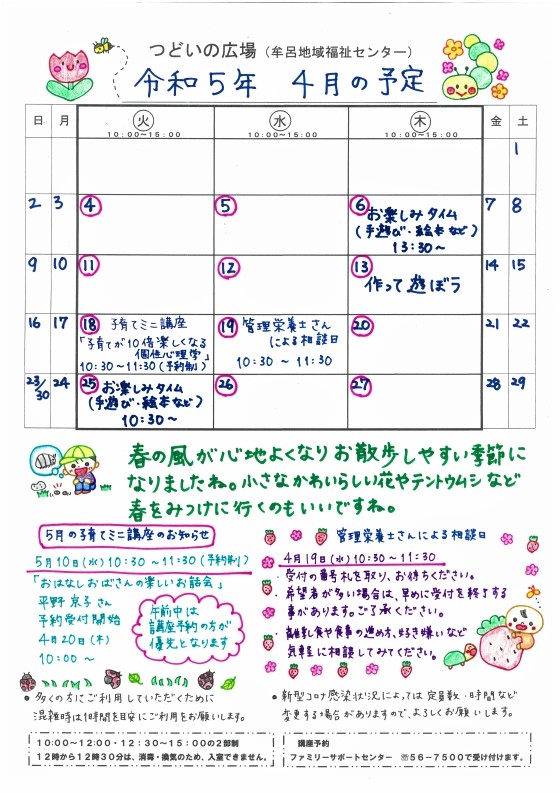 つどいの広場（牟呂地域福祉センター）
令和5年 4月の予定
日 月 火 水 木 金 土
10:00~15:00 10:00~15:00 10:00~15:00
1
2 3 4 5 6 7 8
お楽しみタイム
(手遊び・絵本など)
13:30~
9 10 11 12 13 14 15
作って遊ぼう
16 17 18 19 20 21 22
子育てミニ講座
「子育てが10倍楽しくなる
個性心理学」
10:30~11:30(予約制)
管理栄養士さん
による相談日
10:30 ~ 11:30
23/30 24 25 26 27 28 29
お楽しみタイム
(手遊び・絵本など)
10:30~
春の風が心地よくなりお散歩しやすい季節に
なりましたね。小さなかわいらしい花やテントウムシなど
春をみつけに行くのもいいですね。
5月の子育てミニ講座のお知らせ
5月10日(水)10:30~11:30(予約制)
「おはなしおばさんの楽しいお話会」
平野京子さん
予約受付開始
4月20日(木)
10:00~
午前中は
講座予約の方が
優先となります
管理栄養士さんによる相談日
4月19日(水)10:30~11:30
・受付の番号札を取り、お待ちください。
・希望者が多い場合は、早めに受付を終了する
事があります。ご了承ください。
離乳食や食事の進め方、好き嫌いなど
気軽に相談してみてください。
● 多くの方にご利用していただくために
混雑時は1時間を目安にご利用をお願いします。
● 新型コロナ感染状況によっては定員数・時間など
変更する場合がありますので、よろしくお願いします。
10:00~12:00・12:30~15:00の2部制
12時から12時30分は、消毒・換気のため、入室できません。
講座予約
ファミリーサポートセンター ☏56-7500で受け付けます。